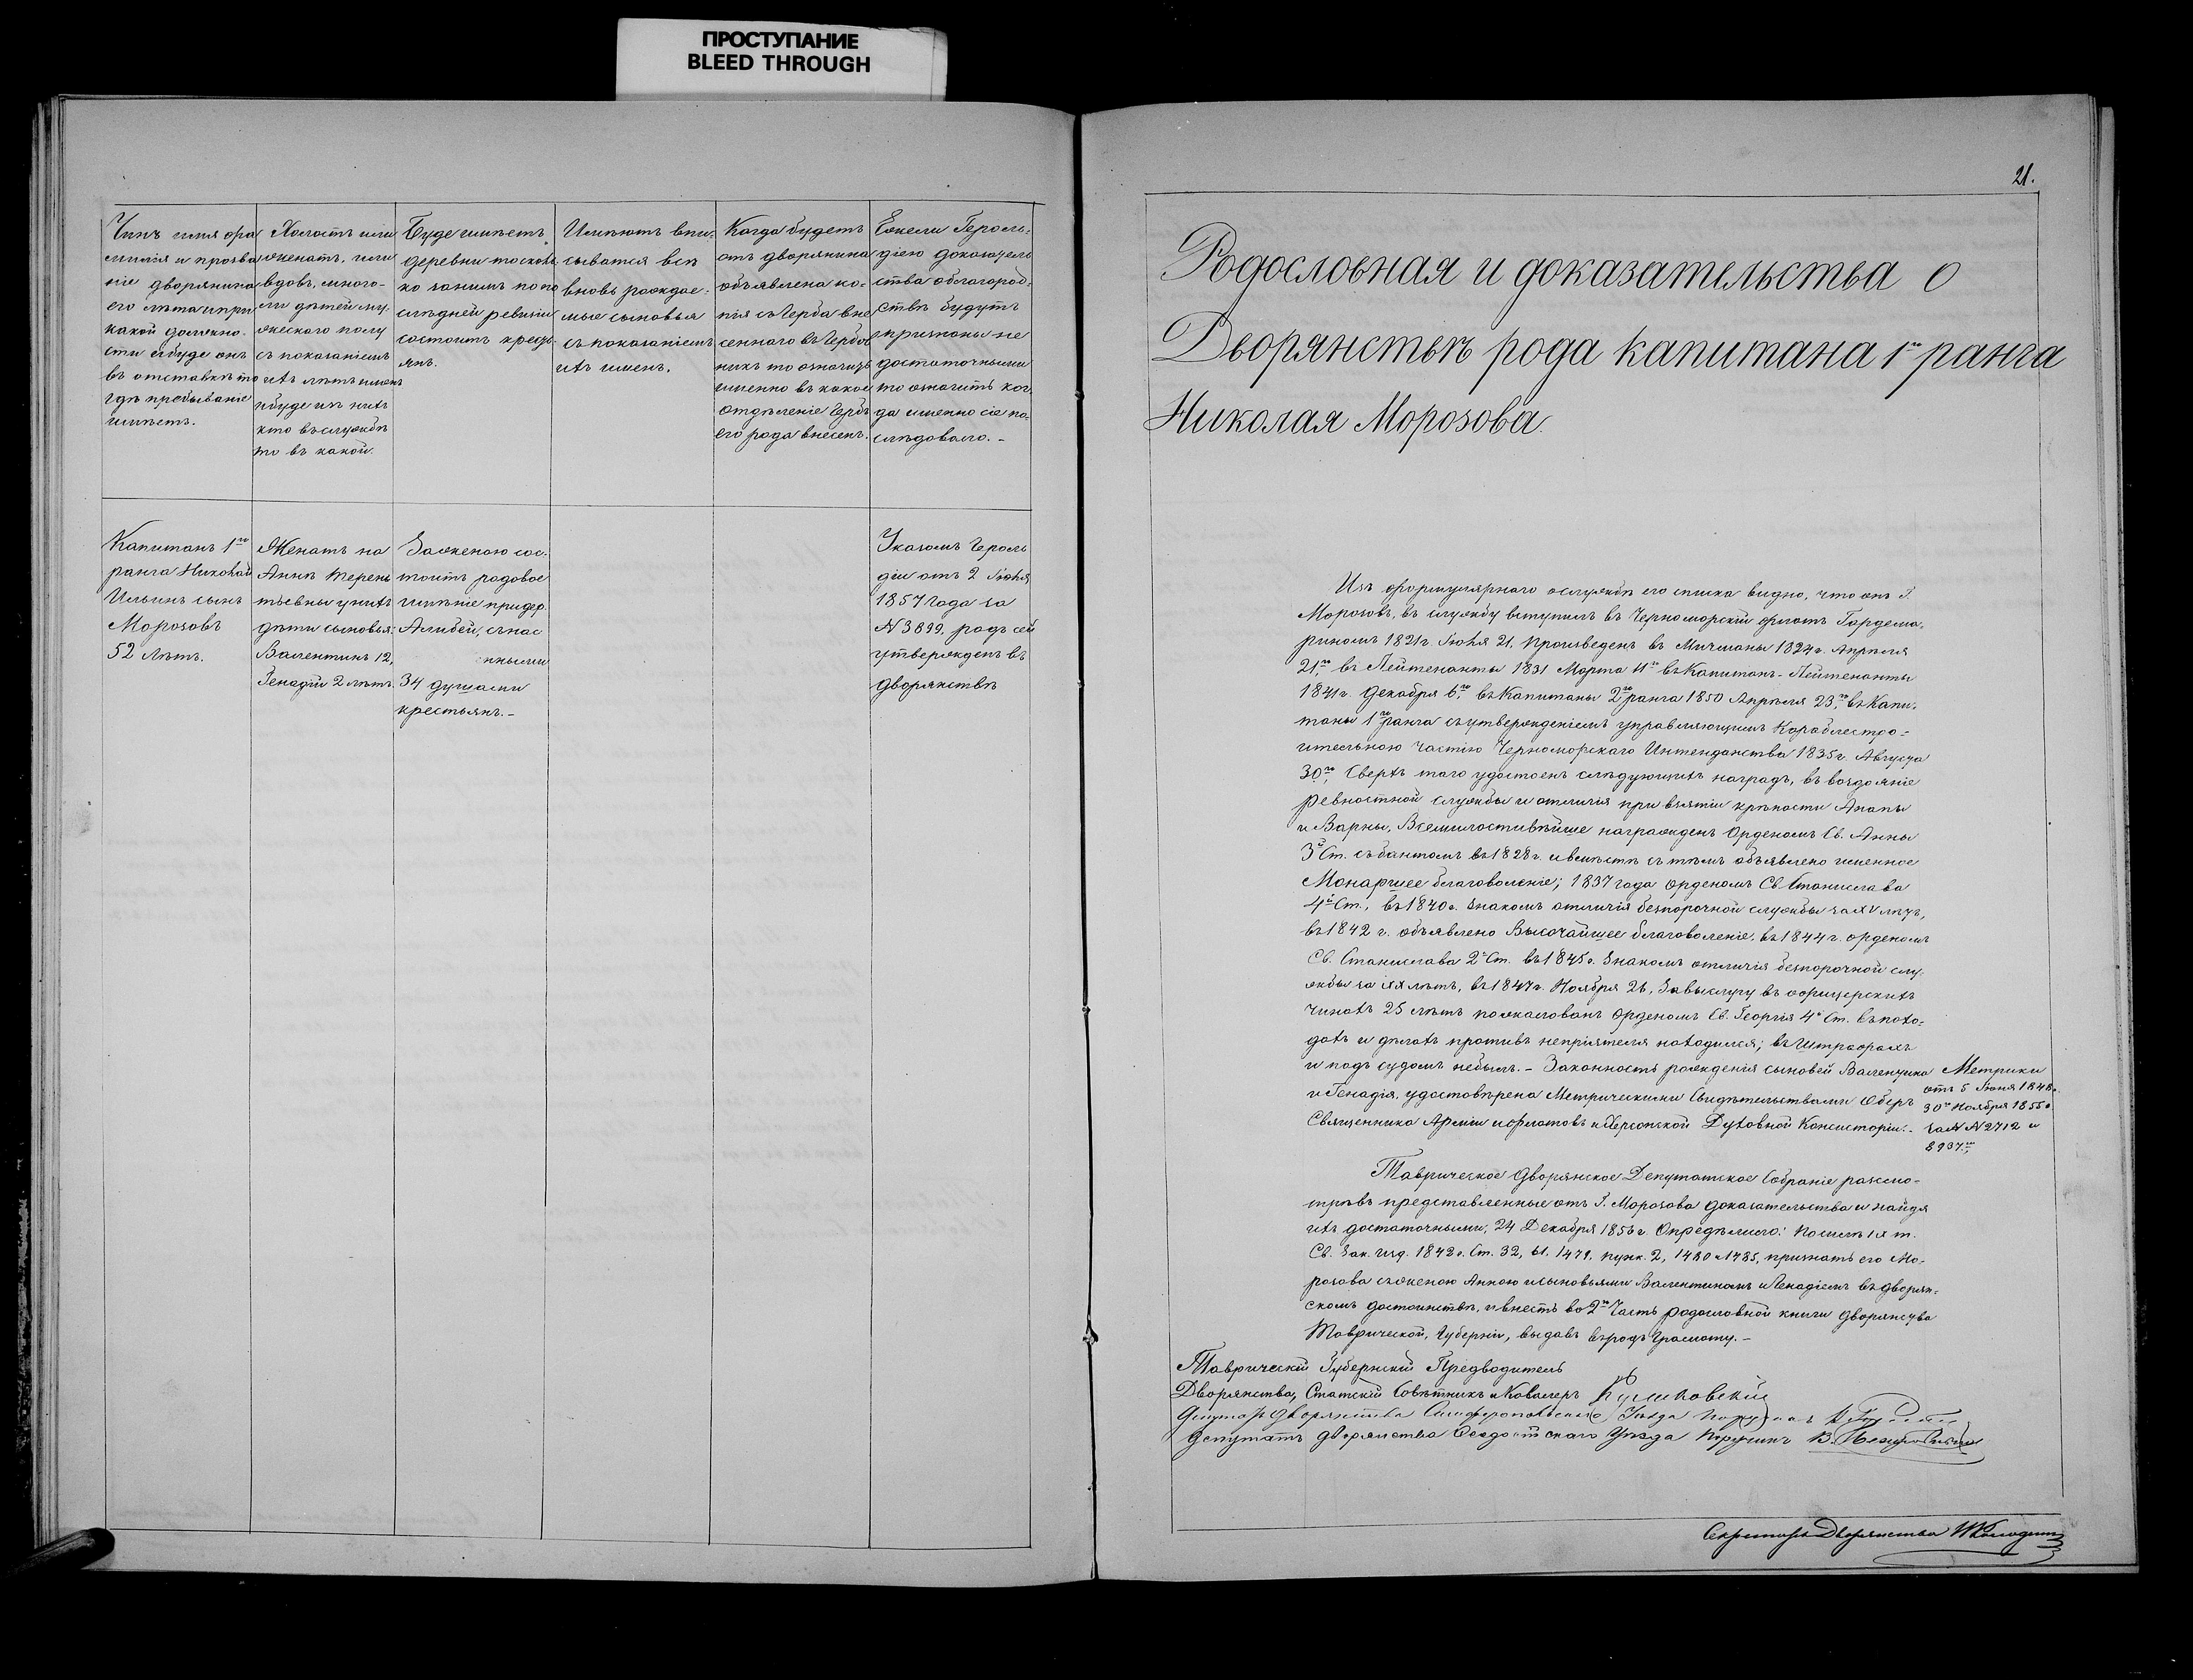 ПРОСТУПАНИЕ
BLEED THROUGH
Чинъ имя фа
милія и прозва
ніе дворянина
его лѣта и при
какой должно-
сти а буде онъ
въ отставкѣ то
гдѣ пребываніе
имѣетъ.
Холостъ или
женатъ, или
вдовъ, много-
ли дѣтей му-
жескаго полу
съ показаніемъ
ихъ лѣтъ именъ
и буде изъ нихъ
кто въ службѣ
то въ какой.
Буде имѣетъ
деревни то сколь
ко за нимъ по по
слѣдней ревизіи
состоитъ кресть
янъ.
Имѣютъ впи-
сыватся всѣ
вновь рождае-
мые сыновья
съ показаніемъ
ихъ именъ.
Когда будетъ
отъ дворянина
объявлена ко-
пія съ Герба вне
сеннаго въ Гербов
никъ то означить
именно въ какое
отдѣленіе Гербъ
его рода внесенъ.
Ежели Героль-
діею доказатель
ства облагород-
ствѣ будутъ
признаны не
достаточными
то означить ког-
да именно сіе по-
слѣдовало.-
Капитанъ 1го
ранга Николай
Ильинъ сынъ
Морозовъ
52 Лѣтъ.
Женатъ на
Аннѣ Терень
тьевны у нихъ
дѣти сыновья:
Валентинъ 12,
Генадій 2 лѣтъ.
За женою сос-
тоитъ родовое
имѣніе при дер.
Алибей, съ нас
нными
34 душами
крестьянъ.-
Указомъ Героль
діи отъ 2 Іюня
1857 года за
N 3899, родъ сей
утвержденъ въ
дворянствѣ
21.
Родословная и доказательства о
Дворянствѣ рода капитана 1го ранга
Николая Морозова.
Изъ формулярнаго о службѣ его списка видно, что онъ Г.
Морозовъ, въ службу вступилъ въ Черноморскій флотъ Гардема-
риномъ 1821 г. Іюня 21. Произведенъ въ Мичманы 1824 г. Апрѣля
21го, въ Лейтенанты 1831 Марта 11го въ Капитанъ-Лейтенанты
1841 г. Декабря 6го, въ Капитаны 2го ранга 1850 Апрѣля 23го, въ Капи-
таны 1го ранга съ утвержденіемъ управляющимъ Кораблестро-
ительною частію Черноморскаго Интендантства 1835 г. Августа
30го, Сверхъ того удостоенъ слѣдующихъ наградъ, въ воздояніе
ревностной службы и отличія при взятіи крѣпости Анапы
и Варны, Всемилостивѣйше награжденъ Орденомъ Св. Анны
3й Ст. съ бантомъ въ 1828 г. и вмѣстѣ съ тѣмъ объявлено именное
Монаршее благоволеніе; 1837 года Орденомъ Св. Станислава
4й Ст., въ 1840 г. знакомъ отличія безпорочной службы за XV лѣтъ,
въ 1842 г. объявлено Высочайшее благоволеніе, въ 1844 г. орденомъ
Св. Станислава 2й Ст. въ 1845 г. Знакомъ отличія безпорочной слу-
жбы за XX лѣтъ, въ 1847 г. Ноября 26, За выслугу въ офицерскихъ
чинахъ 25 лѣтъ пожалованъ Орденомъ Св. Георгія 4й Ст. въ похо-
дахъ и дѣлахъ противъ непріятеля находился; въ Штрафахъ
и подъ судомъ небылъ.- Законность рожденія сыновей Валентина
и Генадія, удостовѣрена Метрическими Свидѣтельствами Оберъ
Священника Арміи и флотовъ и Херсонской Духовной Консисторіи.-
Метрики
отъ 5 Іюня 1848 г.
30го Ноября 1855 г.
за N N 2712 и
8937.
Таврическое Дворянское Депутатское Собраніе разсмо-
трѣвъ представленные отъ Г. Морозова доказательства и найдя
ихъ достаточными, 24 Декабря 1856 г. Опредѣлило: По силѣ IX т.
Св. Зак. изд. 1842 г. Ст. 32, 61, 1479, пунк. 2, 1480 и 1485, признать его Мо-
розова съ женою Анною и сыновьями Валентиномъ и Генадіемъ въ дворян-
скомъ достоинствѣ, и внесть во 2ю Часть родословной книги дворянства
Таврической, Губерніи, выдавъ въ родъ Грамоту.-
Таврическій Губернскій Предводитель
Дворянства, Статскій Совѣтникъ и Кавалеръ
Депутатъ дворянства Симферопольскаго Уѣзда
Депутатъ дворянства Уѣзда
Секретарь Дворянства